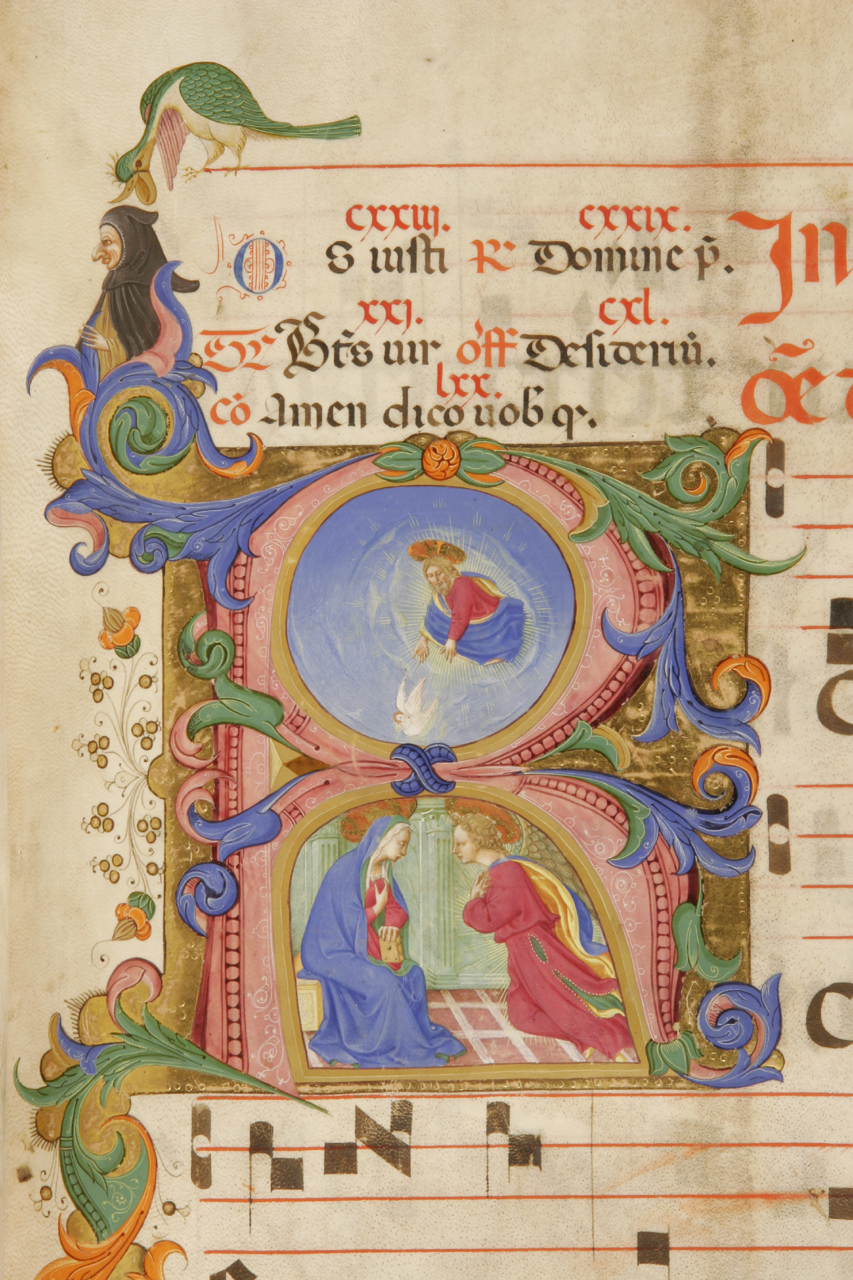 cxxiij. cxxix.
OS iusti R Domine p̄.
xxj. cxl.
Bt̄s uir off Desideriū.
lxx.
cō Amen dico uob qͥ.
In
R